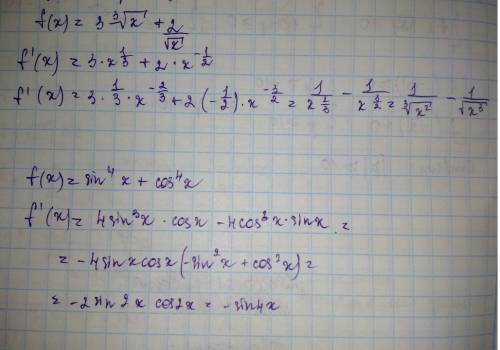 f(x) = 3∛x + 2/√x
f'(x) = 3·x^(1/3) + 2·x^(-1/2)
f'(x) = 3·1/3·x^(-2/3) + 2(-1/2)·x^(-3/2) = 1/x^(2/3) - 1/x^(3/2) = 1/∛x² - 1/√x³
f(x) = sin⁴x + cos⁴x
f'(x) = 4sin³x·cosx - 4cos³x·sinx =
= -4sinxcosx(-sin²x + cos²x) =
= -2sin2x cos2x = -sin4x